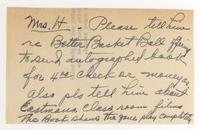 Mrs. H. Please tell him
re Better Basket Ball
to send autographed book
for 4.00 check or money
Also pls tell him about
Eastman Class room films
The Book shows the game play completely